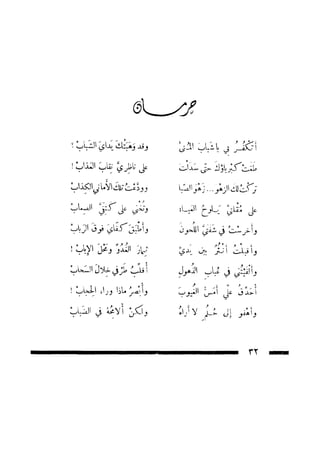 حرمان
أتكفُرُ في يا شبابَ الدُّنى وقد وهبتكَ يدايَ الشباب !
طغت كبرياؤك حتى سدلت على ناظريَّ نقاب العذاب !
تركتُ لك الزهو... زهو الصبا وودَّعتُ تلك الأماني الكِذاب
على مُقلتيَّ يلوحُ المساء وتُجْنى على كتفيَّ الصعاب
وأخرستُ في شفتيَّ اللحون وأطبق كفّايَ فوق الرباب
وأقبلتُ أنثُرُ بين يديَّ نهارَ الغُدُوِّ وليلَ الإياب !
وألفيتُني في عُباب الذهول أقلّبُ طرفي خلال السحاب
أحدِّقُ علّي أمسُّ الغيوب وأُبصرُ ماذا وراء الحجاب !
وأهفو إلى حُلُمٍ لا أراهُ ولكنْ ألاحقهُ في الضباب
٣٢